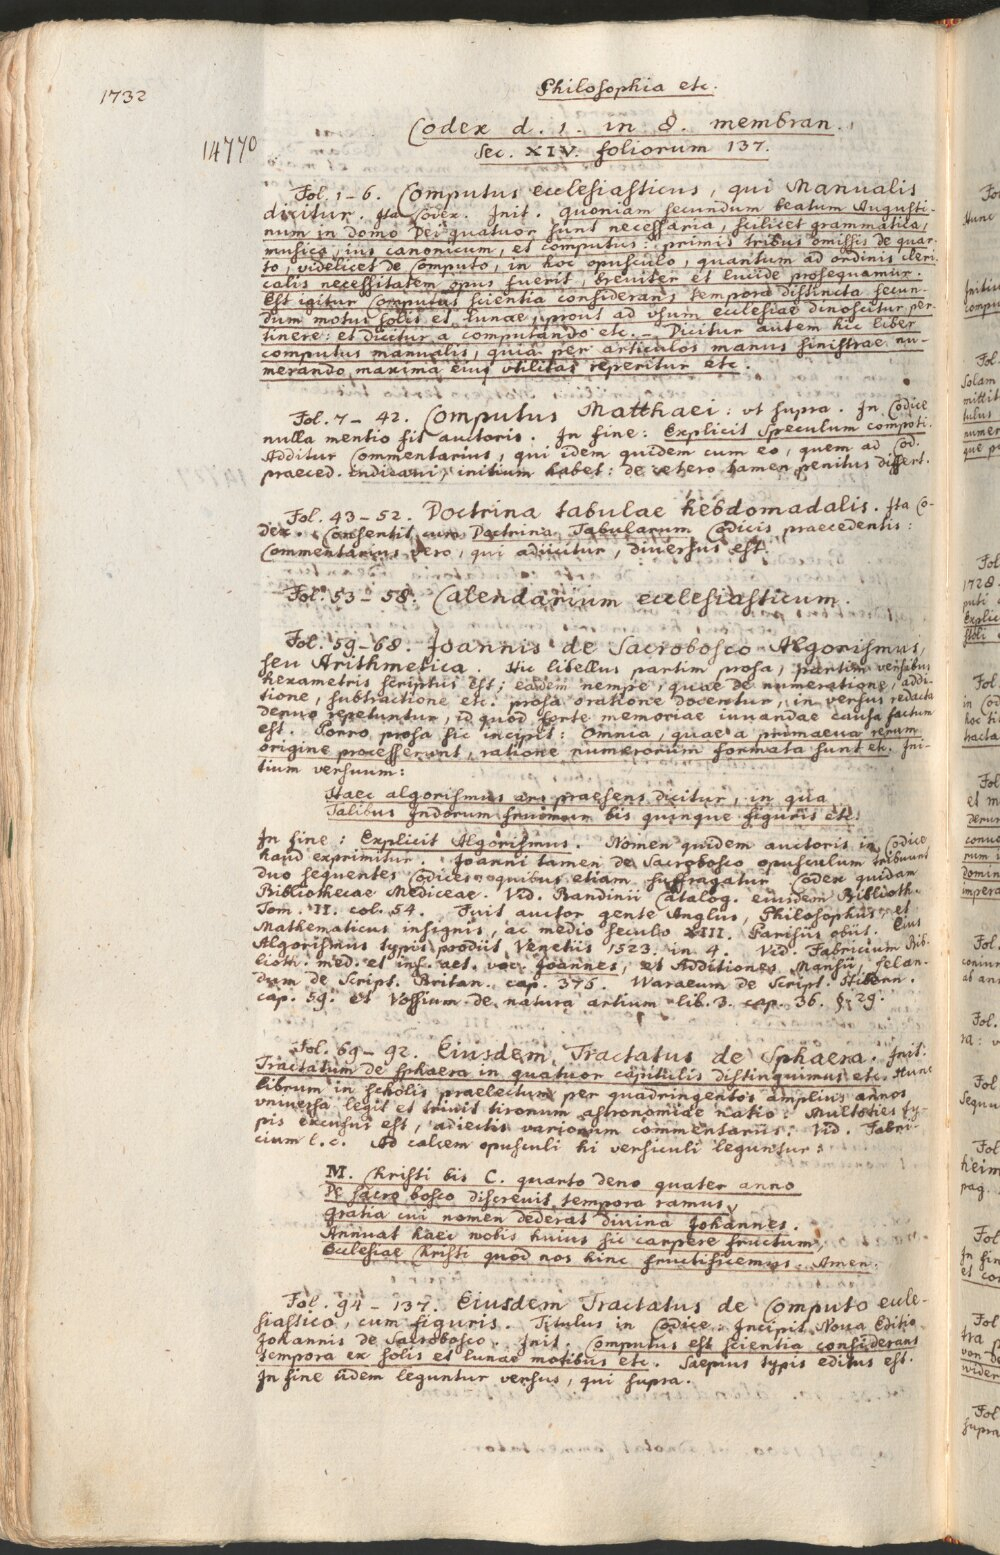 Philosophia etc.
1732
Codex d. 1. in 8. membran.
14770
Sec. XIV. foliorum 137.
Fol. 1-6. Computus ecclesiasticus, qui Manualis
dicitur. Ita Codex. Init. quoniam secundum beatum Augusti-
num in domo Dei quatuor sunt necessaria, scilicet grammatica,
musica, ius canonicum, et computus: primis tribus omissis de quar-
to, videlicet de Computo, in hoc opusculo, quantum ad ordinis cleri-
calis necessitatem opus fuerit, breviter et lucide prosequamur.
Est igitur Computus scientia considerans tempora distincta secun-
dum motus solis et lunae, prout ad vsum ecclesiae dinoscitur per-
tinere: et dicitur a computando etc. - Dicitur autem hic liber
computus manualis, quia per articulos manus sinistrae nu-
merando maxima eius vtilitas reperitur etc.
Fol. 7- 42. Computus Matthaei: vt supra. In Codice
nulla mentio fit auctoris. In fine: Explicit Speculum compoti.
Additur Commentarius, qui idem quidem cum eo, quem ad Cod.
praeced. indicavi, initium habet: de cetero tamen penitus differt.
Fol. 43-52. Doctrina tabulae hebdomadalis. Ita Co-
dex. Consentit cum Doctrina Tabularum Codicis praecedentis:
Commentarius vero, qui adiicitur, diuersus est.
Fol. 53-58. Calendarium ecclesiasticum.
Fol. 59-68. Joannis de Sacrobosco Algorismus,
seu Arithmetica. Hic libellus partim prosa, partim versibus
hexametris scriptus est; eadem nempe, quae de numeratione, addi-
tione, subtractione etc. prosa oratione docentur, in versus redacta
denuo repetuntur, id quod forte memoriae iuuandae causa factum
est. Porro prosa sic incipit: Omnia, quae a primaeva rerum
origine processerunt, ratione numerorum formata sunt etc. Ini-
tium versuum:
Haec algorismus ars praesens dicitur, in qua
Talibus Indorum fruimur bis quinque figuris etc.
In fine: Explicit Algorismus. Nomen quidem auctoris in Codice
haud exprimitur. Joanni tamen de Sacrobosco opusculum tribuunt
duo sequentes Codices, quibus etiam suffragatur Codex quidam
Bibliothecae Mediceae. Vid. Bandinii Catalog. eiusdem Biblioth.
Tom. II. col. 54. Fuit auctor gente Anglus, Philosophus et
Mathematicus insignis, ac medio seculo XIII. Parisiis obiit. Eius
Algorismus typis prodiit Venetiis 1523. in 4. Vid. Fabricium Bib-
lioth. med. et inf. aet. voc. Joannes, et Additiones Mansii, Lelan-
dum de Script. Britan. cap. 375. Waraeum de Script. Hibern.
cap. 59. et Vossium de natura artium lib. 3. cap. 36. §. 29.
Fol. 69- 92. Eiusdem Tractatus de Sphaera. Init.
Tractatum de sphaera in quatuor capitulis distinguimus etc. Hunc
librum in scholis praelectum per quadringentos amplius annos
vniuersa legit et triuit tironum astronomiae natio: Multoties ty-
pis excusus est, adiectis variorum commentariis. Vid. Fabri-
cium l. c. Ad calcem opusculi hi versiculi leguntur:
M. Christi bis C. quarto deno quater anno
De Sacro bosco discreuit tempora ramus,
Gratia cui nomen dederat diuina Johannes.
Annuat haec nobis huius sic carpere fructum,
Ecclesiae Christi quod nos hinc fructificemus. Amen.
Fol. 94 - 137. Eiusdem Tractatus de Computo eccle-
siastico, cum figuris. Titulus in Codice: Incipit Noua Editio
Johannis de Sacrobosco. Init. Computus est scientia considerans
tempora ex solis et lunae motibus etc. Saepius typis editus est.
In fine iidem leguntur versus, qui supra.